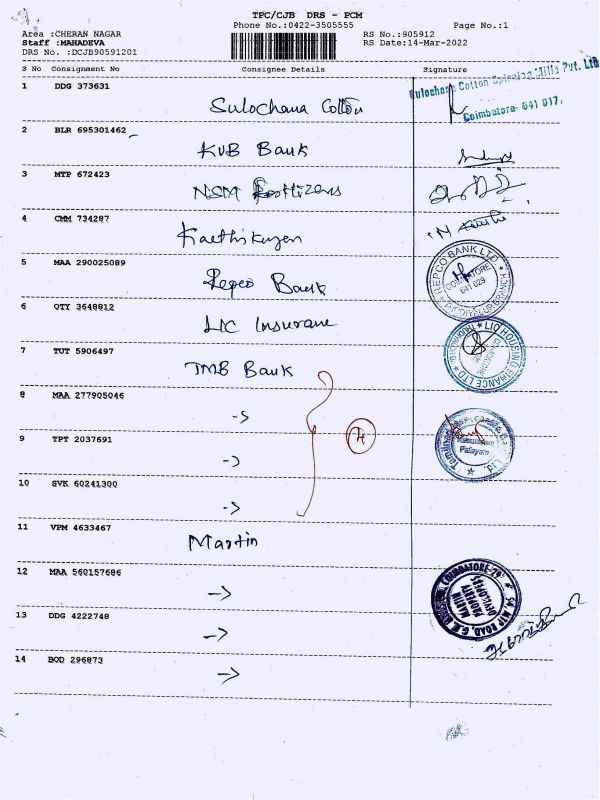 TPC/CJB DRS - PCM
Phone No.:0422-3505555 Page No.:1
Area :CHERAN NAGAR RS No.:905912
Staff :MAHADEVA RS Date:14-Mar-2022
DRS No. :DCJB90591201
S No Consignment No Consignee Details Signature
1 DDG 373631
Sulochana Cotton
Sulochana Cotton Spinning Mills Pvt. Ltd
Coimbatore- 641 017.
2 BLR 695301462
KVB Bank
3 MTP 672423
NSM
4 CMM 734287
5 MAA 290025089
Repco Bank
REPCO BANK LTD.
COIMBATORE
641 029
6 QTY 3648812
LIC Insurane
7 TUT 5906497
TMB Bank
LIC HOUSING FINANCE LTD
8 MAA 277905046
9 TPT 2037691
10 SVK 60241300
11 VPM 4633467
Martin
12 MAA 560157686
MARTIN
PROPERTY
DEVELOPERS
54, MTP ROAD, G.N. COIMBATORE-29
13 DDG 4222748
14 BOD 296873